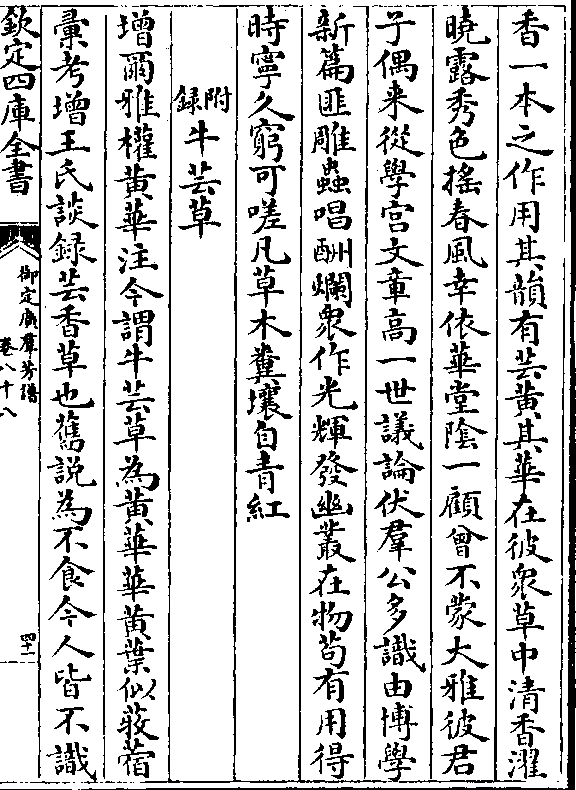 香一本之作用其韻有芸黄其華在彼衆草中清香濯
曉露秀色搖春風幸依華堂陰一顧曾不蒙大雅彼君
子偶来從學宫文章高一世議論伏羣公多識由博學
新篇匪雕蟲唱酬爛衆作光輝發幽叢在物苟有用得
時寧久窮可嗟凡草木糞壤自青紅
附録牛芸草
增爾雅權黄華注今謂牛芸草為黄華華黄葉似蓿
彚考增王氏談録芸香草也舊說為不食今人皆不識
欽定四庫全書
御定廣羣芳譜
卷八十八
四十一